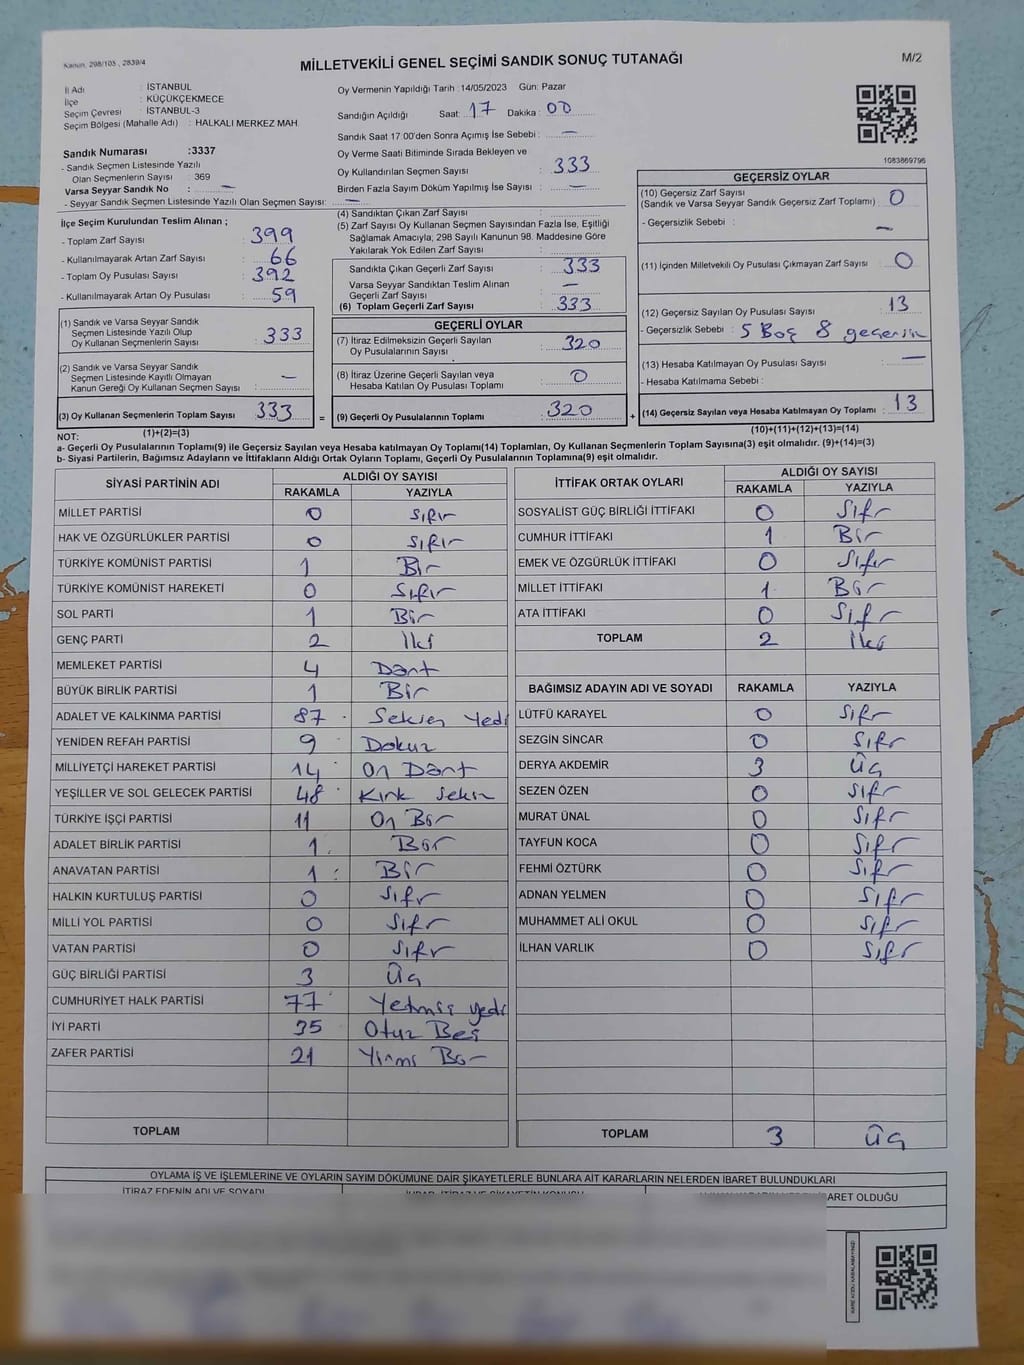 Kanun, 298/105 , 2839/4
MİLLETVEKİLİ GENEL SEÇİMİ SANDIK SONUÇ TUTANAĞI
M/2
İl Adı : İSTANBUL
İlçe : KÜÇÜKÇEKMECE
Seçim Çevresi : İSTANBUL-3
Seçim Bölgesi (Mahalle Adı) : HALKALI MERKEZ MAH.
Sandık Numarası :3337
- Sandık Seçmen Listesinde Yazılı
Olan Seçmenlerin Sayısı : 369
Varsa Seyyar Sandık No : —
- Seyyar Sandık Seçmen Listesinde Yazılı Olan Seçmen Sayısı: —
Oy Vermenin Yapıldığı Tarih :14/05/2023 Gün: Pazar
Sandığın Açıldığı Saat: 17 Dakika: 00
Sandık Saat 17:00'den Sonra Açımış İse Sebebi : —
Oy Verme Saati Bitiminde Sırada Bekleyen ve
Oy Kullandırılan Seçmen Sayısı : 333
Birden Fazla Sayım Döküm Yapılmış İse Sayısı : —
1083869796
İlçe Seçim Kurulundan Teslim Alınan ;
- Toplam Zarf Sayısı : 399
- Kullanılmayarak Artan Zarf Sayısı : 66
- Toplam Oy Pusulası Sayısı : 392
- Kullanılmayarak Artan Oy Pusulası : 59
(1) Sandık ve Varsa Seyyar Sandık
Seçmen Listesinde Yazılı Olup
Oy Kullanan Seçmenlerin Sayısı : 333
(2) Sandık ve Varsa Seyyar Sandık
Seçmen Listesinde Kayıtlı Olmayan
Kanun Gereği Oy Kullanan Seçmen Sayısı : —
(3) Oy Kullanan Seçmenlerin Toplam Sayısı : 333
(4) Sandıktan Çıkan Zarf Sayısı :
(5) Zarf Sayısı Oy Kullanan Seçmen Sayısından Fazla İse, Eşitliği
Sağlamak Amacıyla, 298 Sayılı Kanunun 98. Maddesine Göre
Yakılarak Yok Edilen Zarf Sayısı :
Sandıkta Çıkan Geçerli Zarf Sayısı : 333
Varsa Seyyar Sandıktan Teslim Alınan
Geçerli Zarf Sayısı : —
(6) Toplam Geçerli Zarf Sayısı : 333
GEÇERLİ OYLAR
(7) İtiraz Edilmeksizin Geçerli Sayılan
Oy Pusulalarının Sayısı : 320
(8) İtiraz Üzerine Geçerli Sayılan veya
Hesaba Katılan Oy Pusulası Toplamı : 0
= (9) Geçerli Oy Pusulalarının Toplamı : 320
GEÇERSİZ OYLAR
(10) Geçersiz Zarf Sayısı
(Sandık ve Varsa Seyyar Sandık Geçersiz Zarf Toplamı) : 0
- Geçersizlik Sebebi : —
(11) İçinden Milletvekili Oy Pusulası Çıkmayan Zarf Sayısı : 0
(12) Geçersiz Sayılan Oy Pusulası Sayısı : 13
- Geçersizlik Sebebi : 5 Boş 8 geçersiz
(13) Hesaba Katılmayan Oy Pusulası Sayısı : —
- Hesaba Katılmama Sebebi :
+ (14) Geçersiz Sayılan veya Hesaba Katılmayan Oy Toplamı : 13
(1)+(2)=(3)
(10)+(11)+(12)+(13)=(14)
NOT:
a- Geçerli Oy Pusulalarının Toplamı(9) ile Geçersiz Sayılan veya Hesaba katılmayan Oy Toplamı(14) Toplamları, Oy Kullanan Seçmenlerin Toplam Sayısına(3) eşit olmalıdır. (9)+(14)=(3)
b- Siyasi Partilerin, Bağımsız Adayların ve İttifakların Aldığı Ortak Oyların Toplamı, Geçerli Oy Pusulalarının Toplamına(9) eşit olmalıdır.
SİYASİ PARTİNİN ADI ALDIĞI OY SAYISI
RAKAMLA YAZIYLA
MİLLET PARTİSİ 0 Sıfır
HAK VE ÖZGÜRLÜKLER PARTİSİ 0 Sıfır
TÜRKİYE KOMÜNİST PARTİSİ 1 Bir
TÜRKİYE KOMÜNİST HAREKETİ 0 Sıfır
SOL PARTİ 1 Bir
GENÇ PARTİ 2 İki
MEMLEKET PARTİSİ 4 Dört
BÜYÜK BİRLİK PARTİSİ 1 Bir
ADALET VE KALKINMA PARTİSİ 87 Seksen Yedi
YENİDEN REFAH PARTİSİ 9 Dokuz
MİLLİYETÇİ HAREKET PARTİSİ 14 On Dört
YEŞİLLER VE SOL GELECEK PARTİSİ 48 Kırk Sekiz
TÜRKİYE İŞÇİ PARTİSİ 11 On Bir
ADALET BİRLİK PARTİSİ 1 Bir
ANAVATAN PARTİSİ 1 Bir
HALKIN KURTULUŞ PARTİSİ 0 Sıfır
MİLLİ YOL PARTİSİ 0 Sıfır
VATAN PARTİSİ 0 Sıfır
GÜÇ BİRLİĞİ PARTİSİ 3 Üç
CUMHURİYET HALK PARTİSİ 77 Yetmiş yedi
İYİ PARTİ 35 Otuz Beş
ZAFER PARTİSİ 21 Yirmi Bir
TOPLAM
İTTİFAK ORTAK OYLARI ALDIĞI OY SAYISI
RAKAMLA YAZIYLA
SOSYALİST GÜÇ BİRLİĞİ İTTİFAKI 0 Sıfır
CUMHUR İTTİFAKI 1 Bir
EMEK VE ÖZGÜRLÜK İTTİFAKI 0 Sıfır
MİLLET İTTİFAKI 1 Bir
ATA İTTİFAKI 0 Sıfır
TOPLAM 2 İki
BAĞIMSIZ ADAYIN ADI VE SOYADI RAKAMLA YAZIYLA
LÜTFÜ KARAYEL 0 Sıfır
SEZGİN SİNCAR 0 Sıfır
DERYA AKDEMİR 3 Üç
SEZEN ÖZEN 0 Sıfır
MURAT ÜNAL 0 Sıfır
TAYFUN KOCA 0 Sıfır
FEHMİ ÖZTÜRK 0 Sıfır
ADNAN YELMEN 0 Sıfır
MUHAMMET ALİ OKUL 0 Sıfır
İLHAN VARLIK 0 Sıfır
TOPLAM 3 Üç
OYLAMA İŞ VE İŞLEMLERİNE VE OYLARIN SAYIM DÖKÜMÜNE DAİR ŞİKAYETLERLE BUNLARA AİT KARARLARIN NELERDEN İBARET BULUNDUKLARI
İTİRAZ EDENİN ADI VE SOYADI
İBARET OLDUĞU
KARE KODU KARALAMAYINIZ!